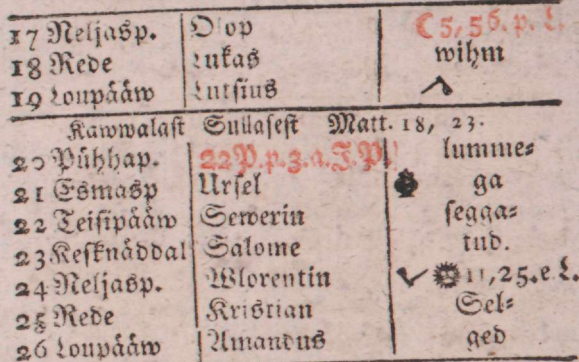 17 Neljasp. Olop ☾ 5, 56. p. L.
18 Rede Lukas wihm
19 Loupääw Lutsius
Kawwalast Sullasest Matt. 18, 23.
20 Pühhap. 22 P. p. 3. a. J. P. lumme⸗
21 Esmasp Ursel ga
22 Teisipääw Sewerin segga⸗
23 Kesknäddal Salome tud.
24 Neljasp. Wlorentin 11,25.e L.
25 Rede Kristian Sel⸗
26 Loupääw Amandus ged